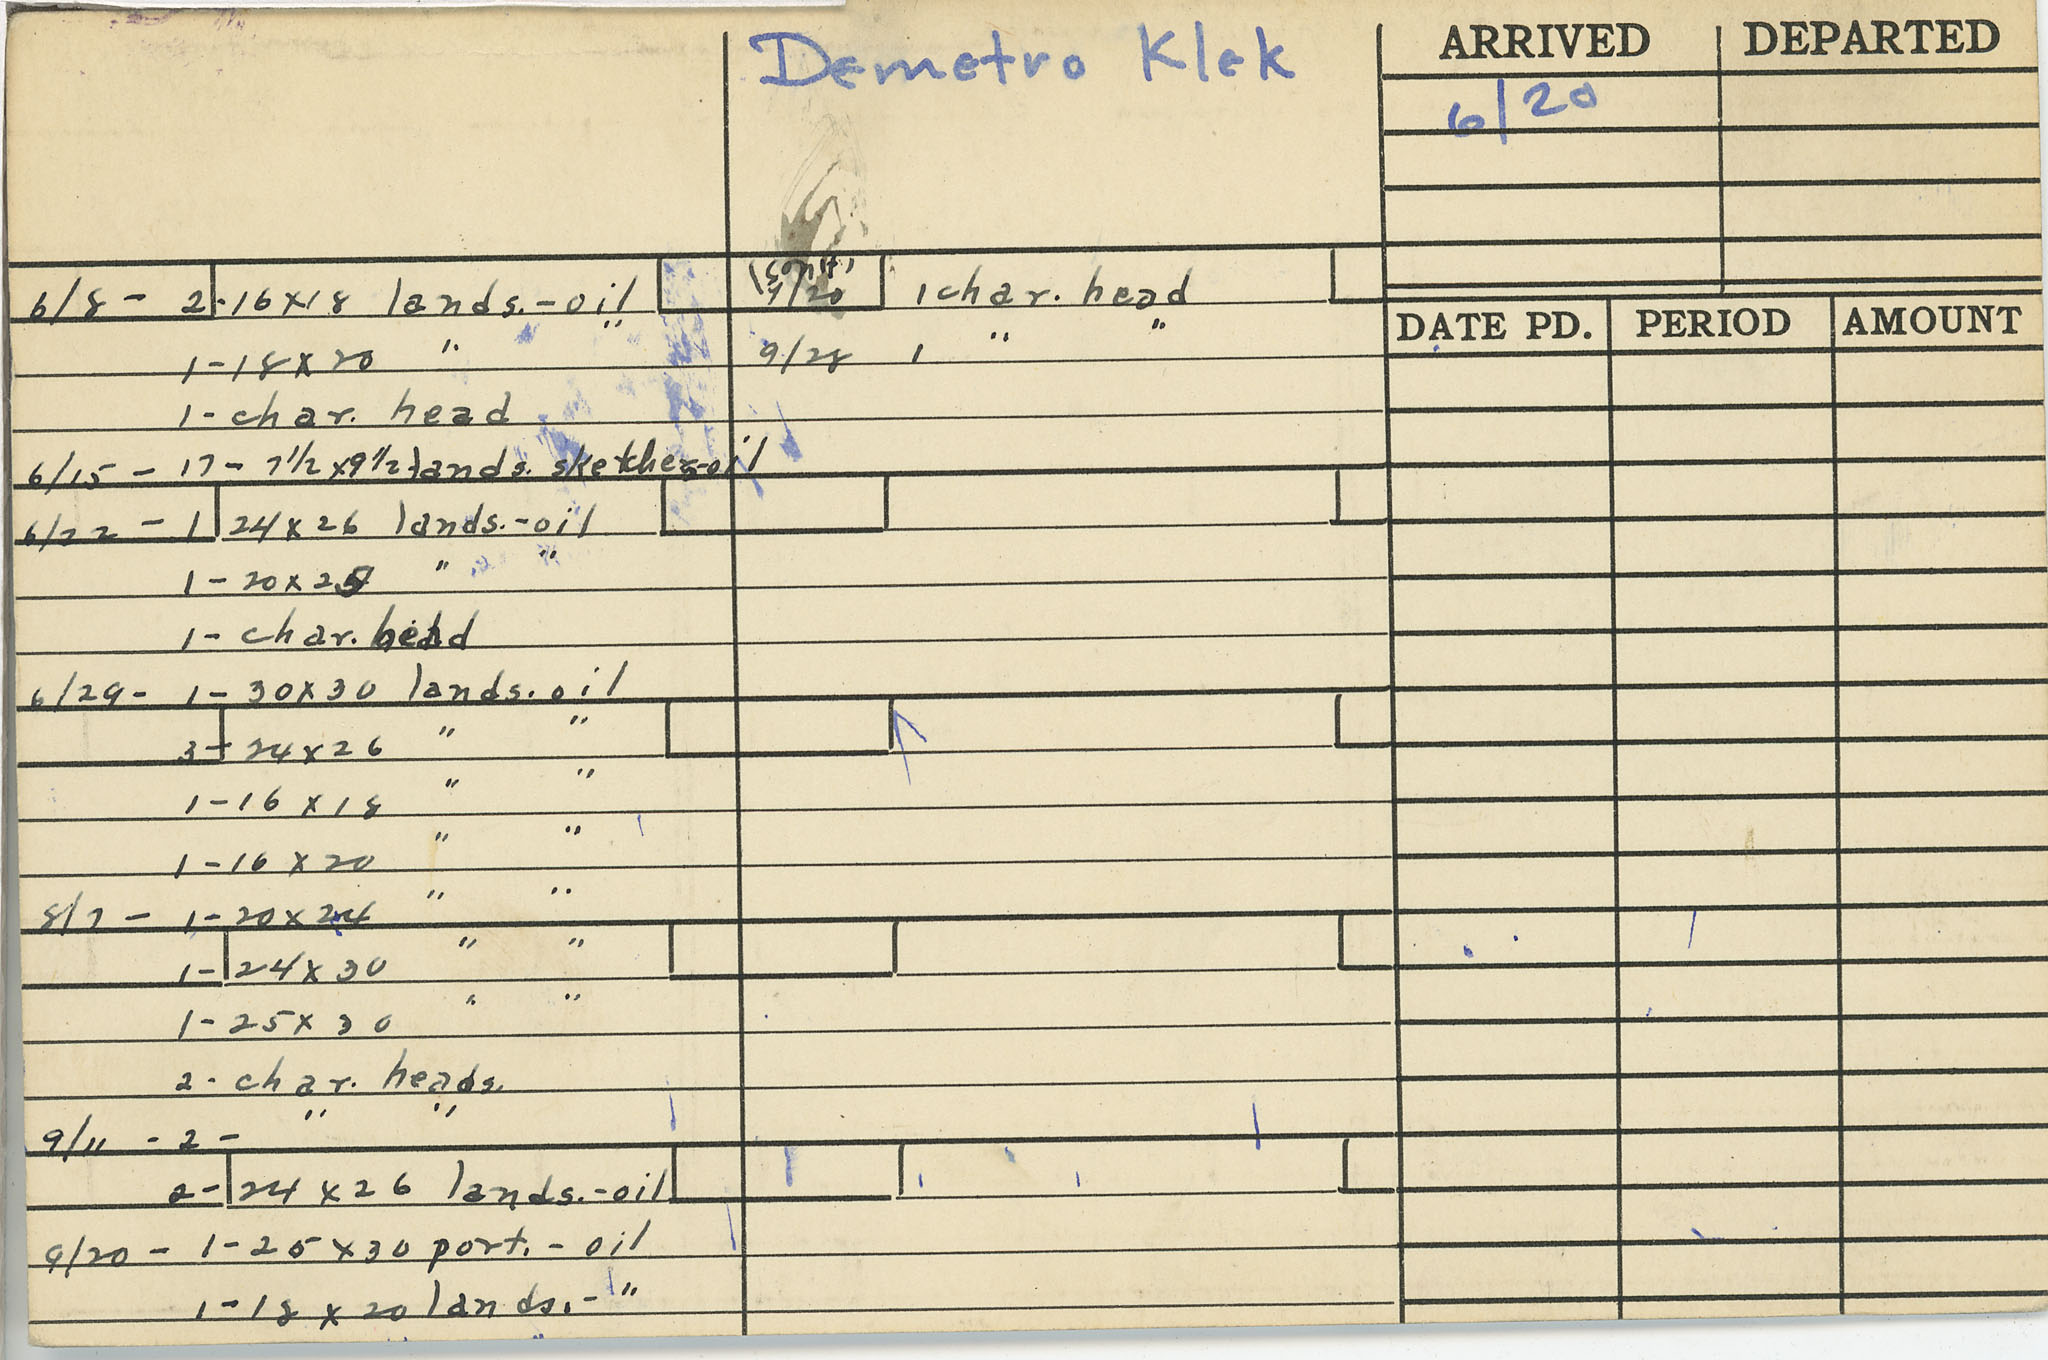 Demetro Klek
ARRIVED DEPARTED
6/20
6/8 - 2 - 16 x 18 lands. - oil
1 - 18 x 20 " "
1 - char. head
6/15 - 17 - 7 1/2 x 9 1/2 lands. sketches-oil
6/22 - 1 24 x 26 lands. - oil
1 - 20 x 25 " "
1 - char. head
6/29 - 1 - 30 x 30 lands. oil
3 - 24 x 26 " "
1 - 16 x 18 " "
1 - 16 x 20 " "
8/7 - 1 - 20 x 24 " "
1 - 24 x 30 " "
1 - 25 x 30 " "
2 - char. heads.
9/11 - 2 - " "
2 - 24 x 26 lands. - oil
9/20 - 1 - 25 x 30 port. - oil
1 - 18 x 20 lands. - "
(con't)
9/20 1 char. head
9/28 1 " "
DATE PD. PERIOD AMOUNT